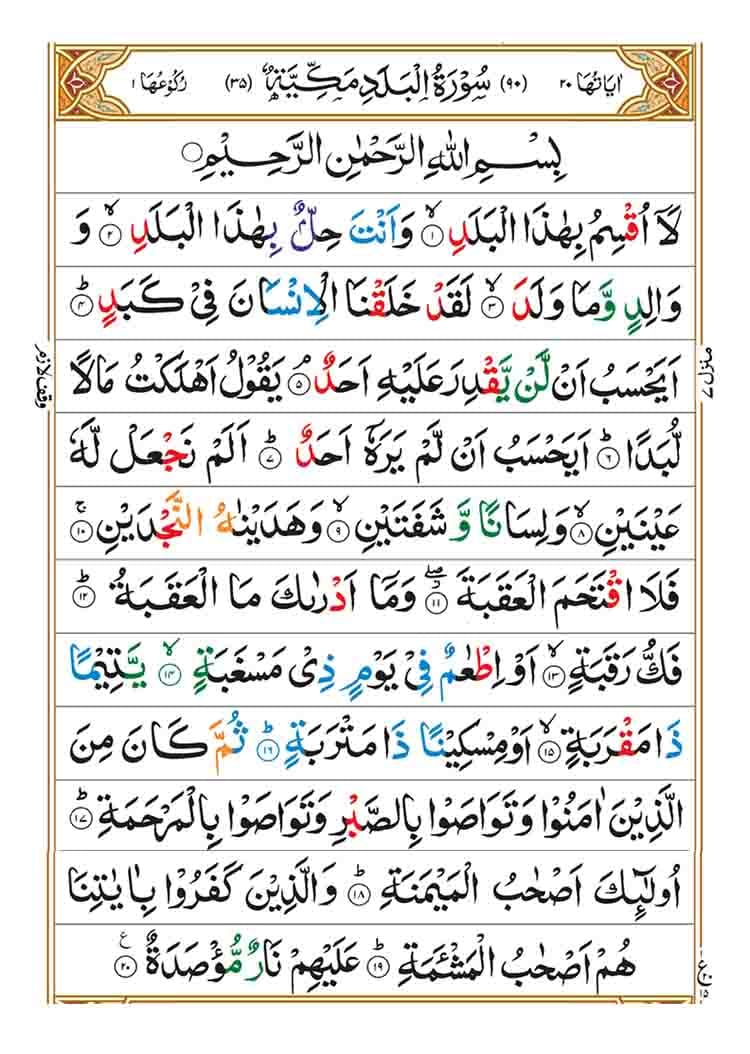 اٰيَاتُهَا ٢٠ (٩٠) سُوْرَةُ الْبَلَدِ مَكِّيَّةٌ (٣٥) رُكُوْعُهَا ١
بِسْمِ اللهِ الرَّحْمٰنِ الرَّحِيْمِ ۝
لَاۤ اُقْسِمُ بِهٰذَا الْبَلَدِ ۙ‏﴿١﴾ وَاَنْتَ حِلٌّۢ بِهٰذَا الْبَلَدِ ۙ‏﴿٢﴾ وَ
وَالِدٍ وَّمَا وَلَدَ ۙ‏﴿٣﴾ لَقَدْ خَلَقْنَا الْاِنْسَانَ فِيْ كَبَدٍ ؕ‏﴿٤﴾
اَيَحْسَبُ اَنْ لَّنْ يَّقْدِرَ عَلَيْهِ اَحَدٌ ۘ‏﴿٥﴾ يَقُوْلُ اَهْلَكْتُ مَالًا
لُّبَدًا ؕ‏﴿٦﴾ اَيَحْسَبُ اَنْ لَّمْ يَرَهٗۤ اَحَدٌ ؕ‏﴿٧﴾ اَلَمْ نَجْعَلْ لَّهٗ
عَيْنَيْنِ ۙ‏﴿٨﴾ وَلِسَانًا وَّشَفَتَيْنِ ۙ‏﴿٩﴾ وَهَدَيْنٰهُ النَّجْدَيْنِ ۚ‏﴿١٠﴾
فَلَا اقْتَحَمَ الْعَقَبَةَ ۖ‏﴿١١﴾ وَمَاۤ اَدْرٰىكَ مَا الْعَقَبَةُ ؕ‏﴿١٢﴾
فَكُّ رَقَبَةٍ ۙ‏﴿١٣﴾ اَوْ اِطْعٰمٌ فِيْ يَوْمٍ ذِيْ مَسْغَبَةٍ ۙ‏﴿١٤﴾ يَّتِيْمًا
ذَا مَقْرَبَةٍ ۙ‏﴿١٥﴾ اَوْ مِسْكِيْنًا ذَا مَتْرَبَةٍ ؕ‏﴿١٦﴾ ثُمَّ كَانَ مِنَ
الَّذِيْنَ اٰمَنُوْا وَتَوَاصَوْا بِالصَّبْرِ وَتَوَاصَوْا بِالْمَرْحَمَةِ ؕ‏﴿١٧﴾
اُولٰٓئِكَ اَصْحٰبُ الْمَيْمَنَةِ ؕ‏﴿١٨﴾ وَالَّذِيْنَ كَفَرُوْا بِاٰيٰتِنَا
هُمْ اَصْحٰبُ الْمَشْئَمَةِ ؕ‏﴿١٩﴾ عَلَيْهِمْ نَارٌ مُّؤْصَدَةٌ ۧ‏﴿٢٠﴾
منزل ٧
وقف لازم
ع
١٥